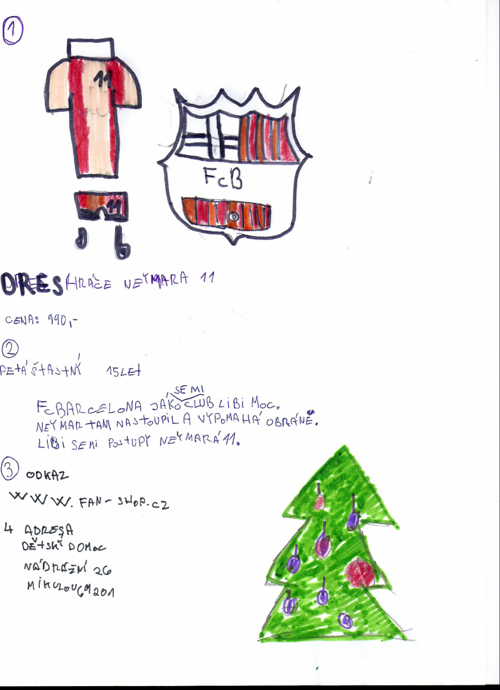 1
11
11
FcB
DRES HRÁČE NEYMARA 11
CENA: 990,-
2
PEŤÁ ŠTASTNÝ 15 LET
SE MI
FCBARCELONA JAKO CLUB LIBI MOC.
NEYMAR TAM NASTOUPIL A VYPOMAHÁ OBRANĚ.
LIBI SE MI POSTUPY NEYMARÁ 11.
3 ODKAZ
WWW.FAN-SHOP.CZ
4 ADRESA
DĚTSKÝ DOMOC
NÁDRAŽNÍ 26
69201